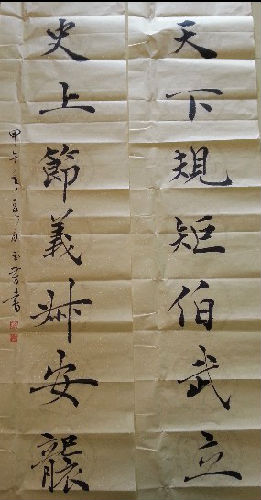 天下規矩伯武立
史上節義叔安襲
甲午 書